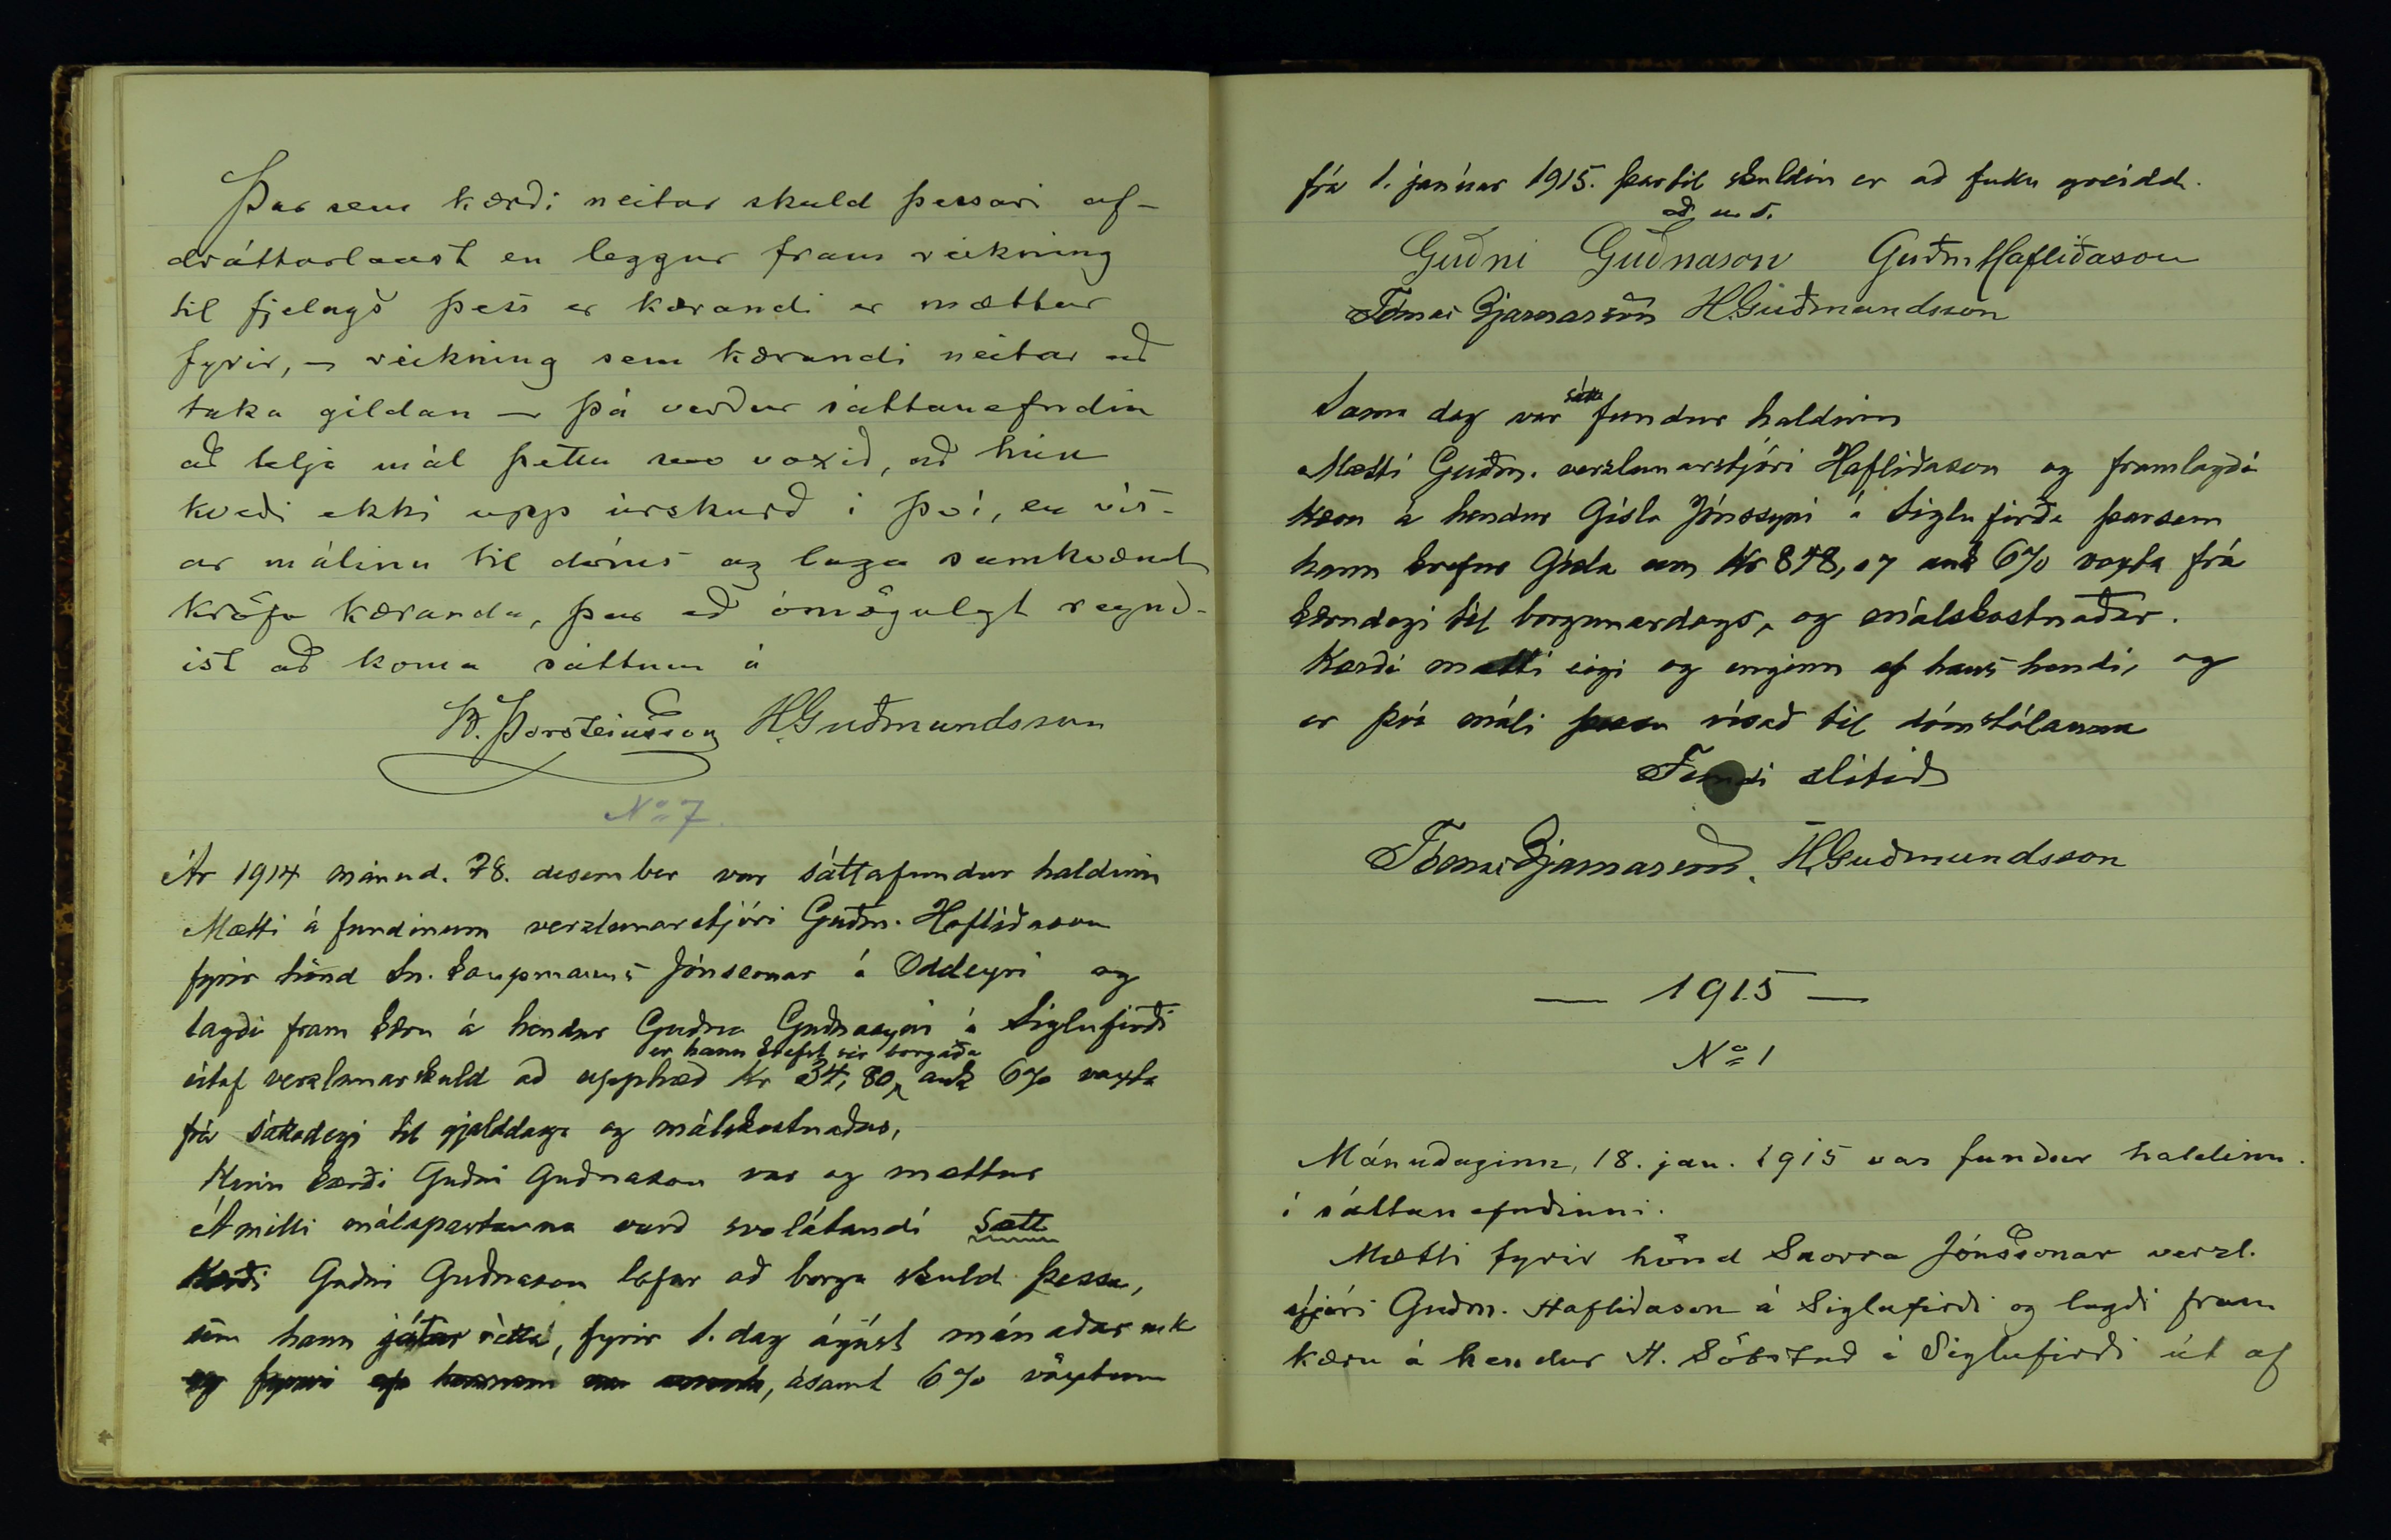 Þar sem kærði neitar skuld þessari af-
dráttarlaust en leggur fram reikning
til fjelags þess er kærandi er mættur
fyrir, – reikning sem kærandi neitar að
taka gildan – þá verður sáttanefndin
að telja mál þetta svo vaxið, að hún
kveði ekki upp úrskurð í því, en vís-
ar málinu til dóms og laga samkvæmt
kröfu kæranda, þar eð ómögulegt reynd-
ist að koma sáttum á
B. Þorsteinsson H. Guðmundsson
No 7.
Ár 1914 mánud. 28. desember var sáttafundur haldinn
Mætti á fundinum verzlunarstjóri Guðm. Hafliðason
fyrir hönd Sn. kaupmanns Jónssonar á Oddeyri og
lagði fram kæru á hendur Guðna Guðnasyni á Siglufirði
er hann krefst sér borgaða
útaf verzlunarskuld að upphæð Kr 34,80, auk 6% vaxta
frá sáttadegi til gjalddaga og málskostnaðar,
Hinn kærði Guðni Guðnason var og mættur
Á milli málspartanna varð svolátandi Sætt
Kærði Guðni Guðnason lofar að borga skuld þessa,
sem hann játar rétta, fyrir 1. dag ágúst mánaðar n.k
og, ásamt 6% vöxtum
frá 1. janúar 1915. þartil skuldin er að fullu greidd.
Guðni Guðnason Guðm Hafliðason
Tómas Bjarnason H. Guðmundsson
Sama dag var sátta fundur haldinn
Mætti Guðm. verzlunarstjóri Hafliðason og framlagði
kæru á hendur Gísla Jónssyni á Siglufirði þarsem
hann krefur Gísla um Kr 878,07 auk 6% vaxta frá
kærudegi til borgunardags, og málskostnaðar.
Kærði mætti eigi og enginn af hans hendi, og
er því máli þessu vísað til dómstólanna
Fundi slitið
Tómas Bjarnason. H. Guðmundsson
— 1915 —
No 1
Mánudaginn, 18. jan. 1915 var fundur haldinn
í sáttanefndinni.
Mætti fyrir hönd Snorra Jónssonar verzl.
stjóri Guðm. Hafliðason á Siglufirði og lagði fram
kæru á hendur H. Söbstad á Siglufirði út af